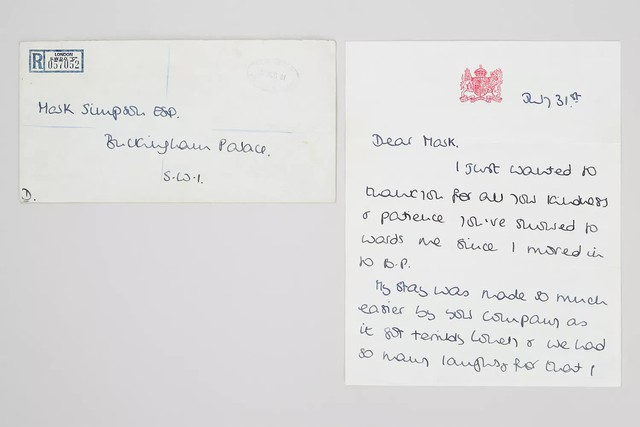 R
LONDON
057052
Mark Simpson ESQ.
Buckingham Palace.
S.W.1.
D.
July 31st
Dear Mark.
I just wanted to
thank you for all your kindness
& patience you've showed to
wards me since I moved in
to B.P.
My stay was made so much
easier by your company as
it got terribly lonely & we had
so many laughs for that I